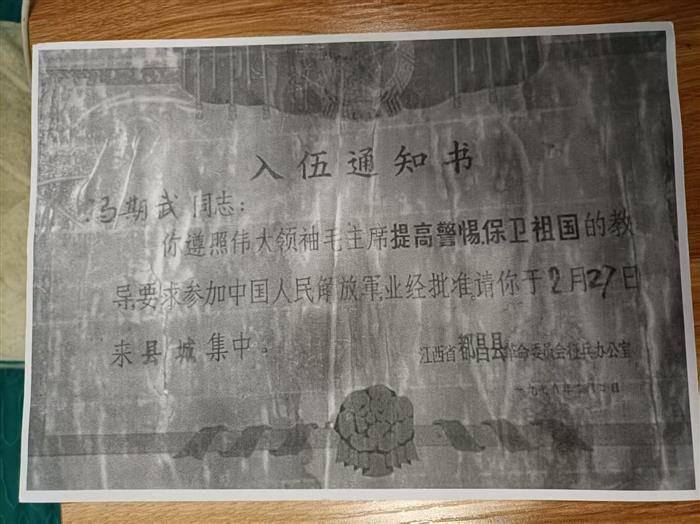 入伍通知书
冯期武同志：
你遵照伟大领袖毛主席提高警惕,保卫祖国的教
导要求参加中国人民解放军,业经批准请你于2月27日
来县城集中。
江西省都昌县革命委员会征兵办公室